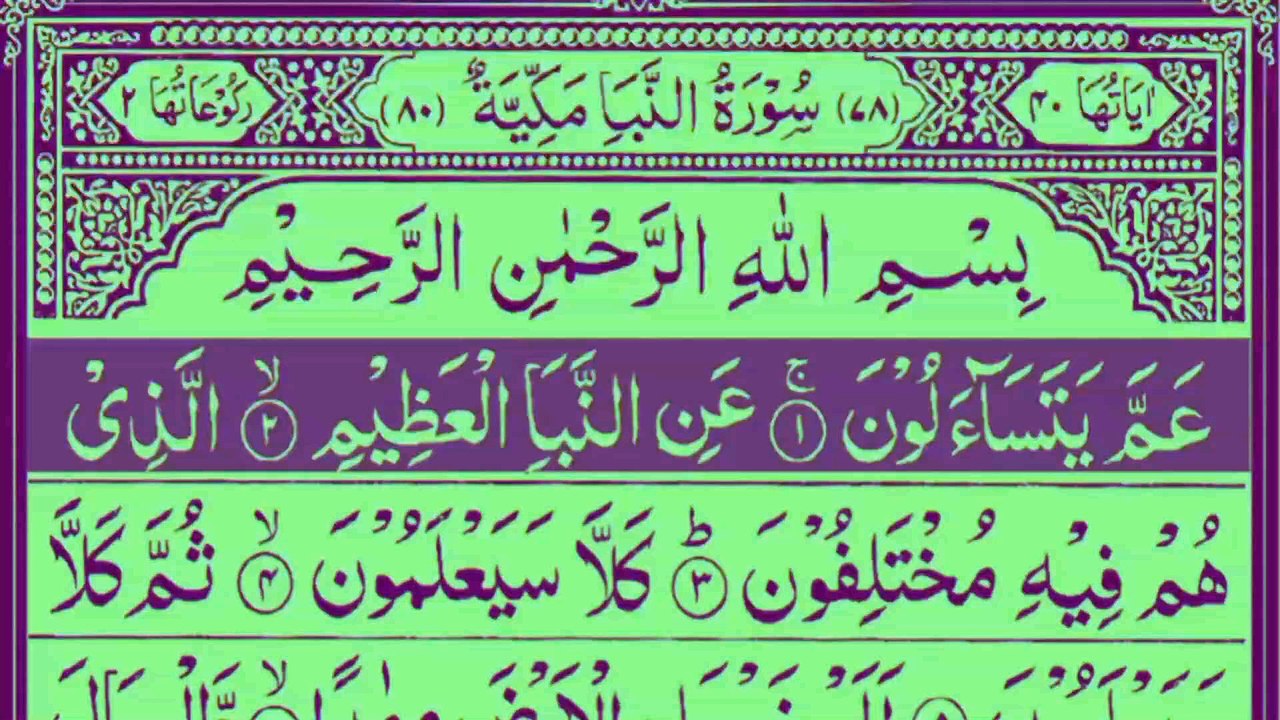 اٰيَاتُهَا ٤٠ (٧٨) سُوْرَةُ النَّبَاِ مَكِّيَّةٌ (٨٠) رُكُوْعَاتُهَا ٢
بِسْمِ اللّٰهِ الرَّحْمٰنِ الرَّحِيْمِ
عَمَّ يَتَسَآءَلُوْنَ ۚ ١ عَنِ النَّبَاِ الْعَظِيْمِ ۙ ٢ الَّذِىْ
هُمْ فِيْهِ مُخْتَلِفُوْنَ ؕ ٣ كَلَّا سَيَعْلَمُوْنَ ۙ ٤ ثُمَّ كَلَّا